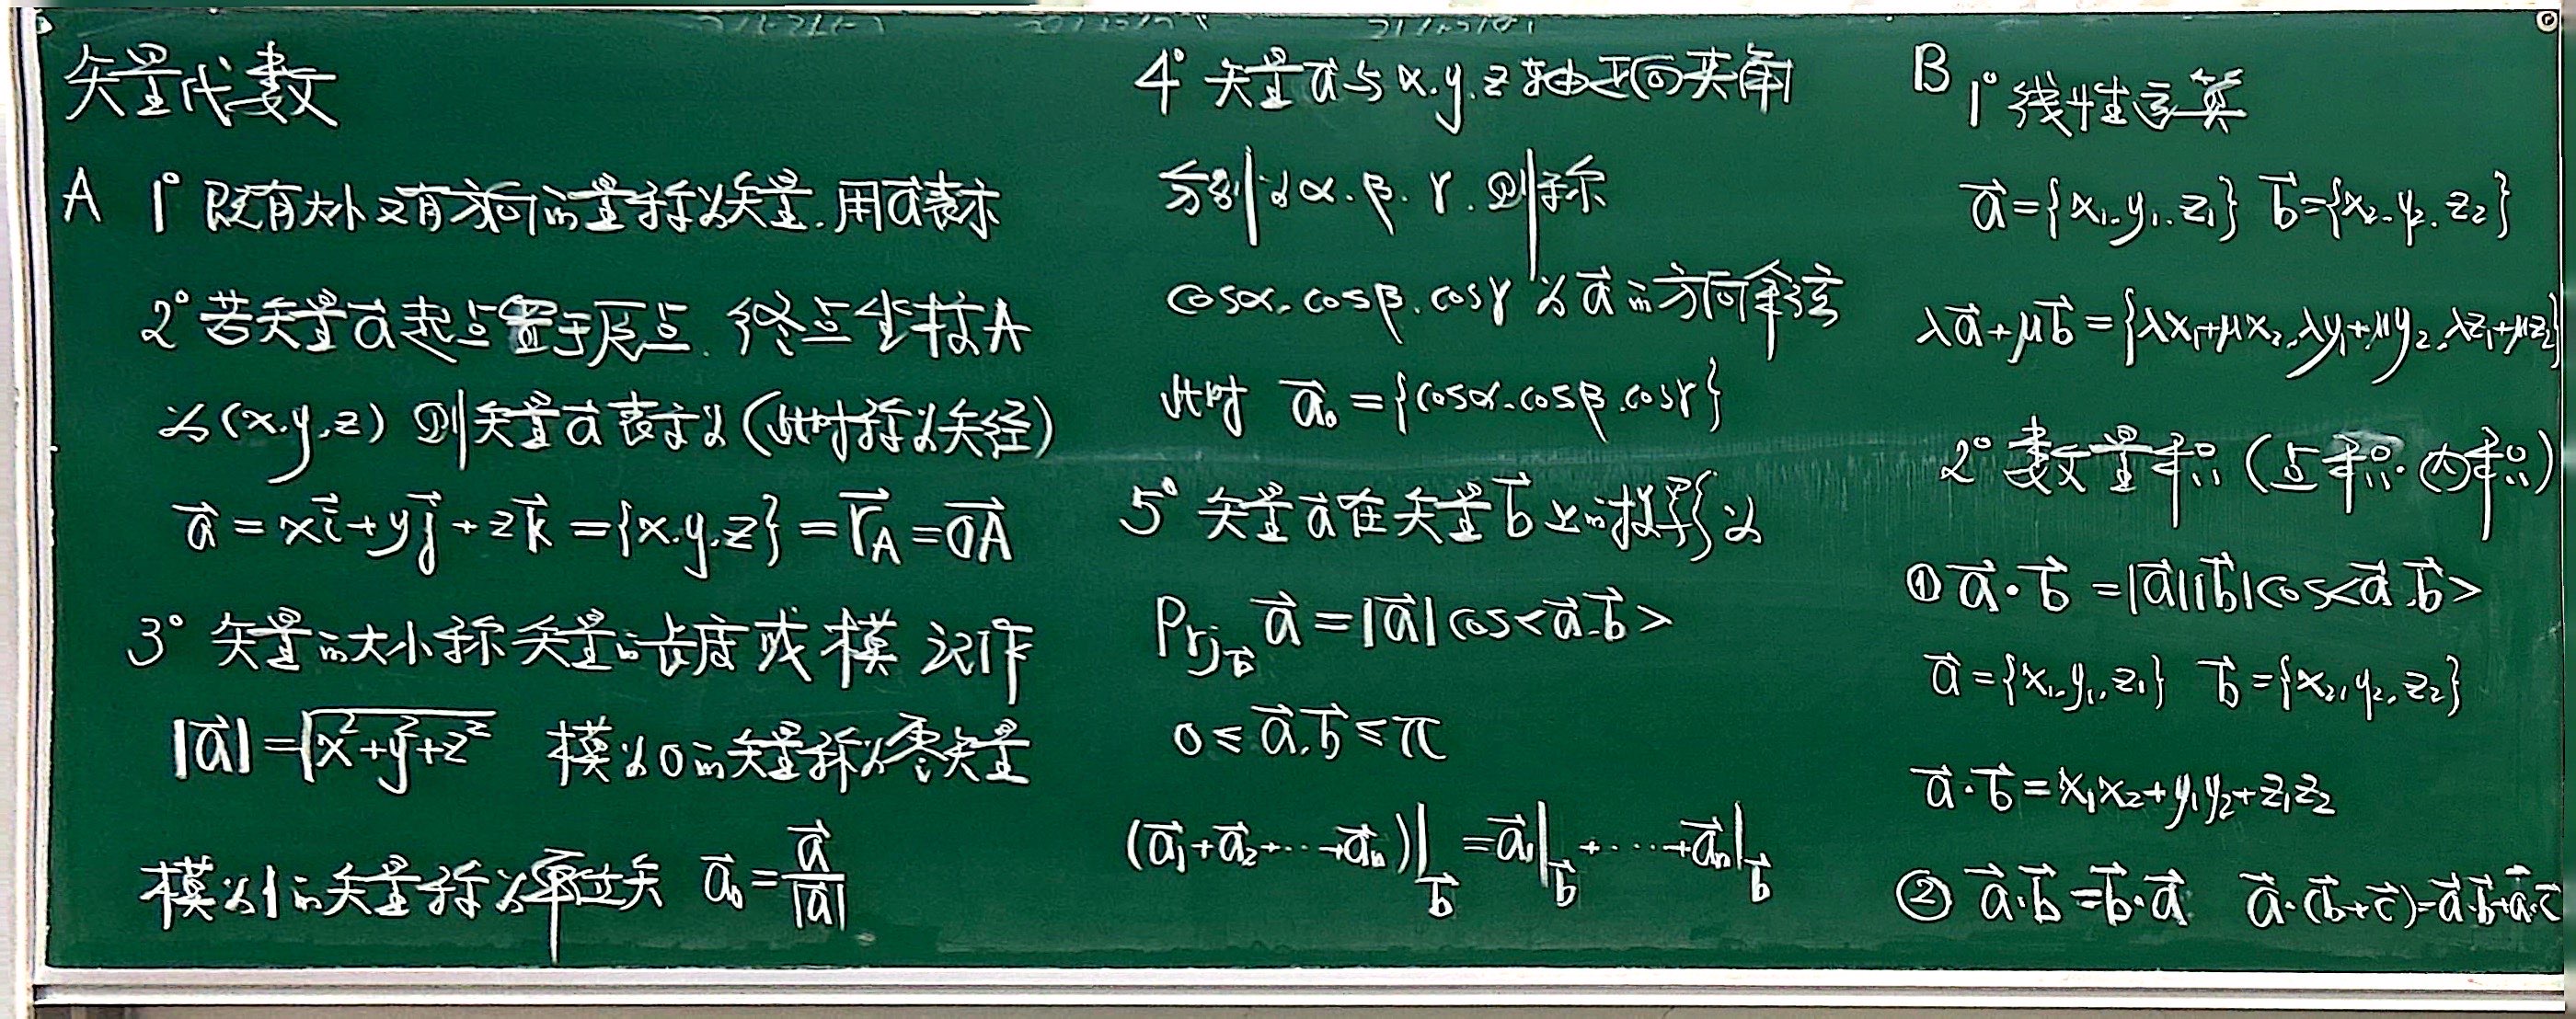 矢量代数
A 1° 既有大小又有方向的量称为矢量.用a⃗表示
2° 若矢量a⃗起点置于原点.终点坐标A
为(x.y.z) 则矢量a⃗表示为(此时称为矢径)
a⃗=xi⃗+yj⃗+zk⃗={x.y.z}=r⃗_A=OA⃗
3° 矢量的大小称矢量的长度或模 记作
|a⃗|=√(x²+y²+z²) 模为0的矢量称为零矢量
模为1的矢量称为单位矢 a⃗₀=a⃗/|a⃗|
4° 矢量a⃗与x.y.z轴正向夹角
分别为α.β.γ.则称
cosα.cosβ.cosγ为a⃗的方向余弦
此时 a⃗₀={cosα.cosβ.cosγ}
5° 矢量a⃗在矢量b⃗上的投影为
Prj_b⃗ a⃗=|a⃗|cos<a⃗.b⃗>
0≤a⃗.b⃗≤π
(a⃗₁+a⃗₂+⋯+a⃗ₙ)|_b⃗=a⃗₁|_b⃗+⋯+a⃗ₙ|_b⃗
B 1° 线性运算
a⃗={x₁.y₁.z₁} b⃗={x₂.y₂.z₂}
λa⃗+μb⃗={λx₁+μx₂.λy₁+μy₂.λz₁+μz₂}
2° 数量积(点积.内积)
① a⃗·b⃗=|a⃗||b⃗|cos<a⃗.b⃗>
a⃗={x₁.y₁.z₁} b⃗={x₂.y₂.z₂}
a⃗·b⃗=x₁x₂+y₁y₂+z₁z₂
② a⃗·b⃗=b⃗·a⃗ a⃗·(b⃗+c⃗)=a⃗·b⃗+a⃗·c⃗